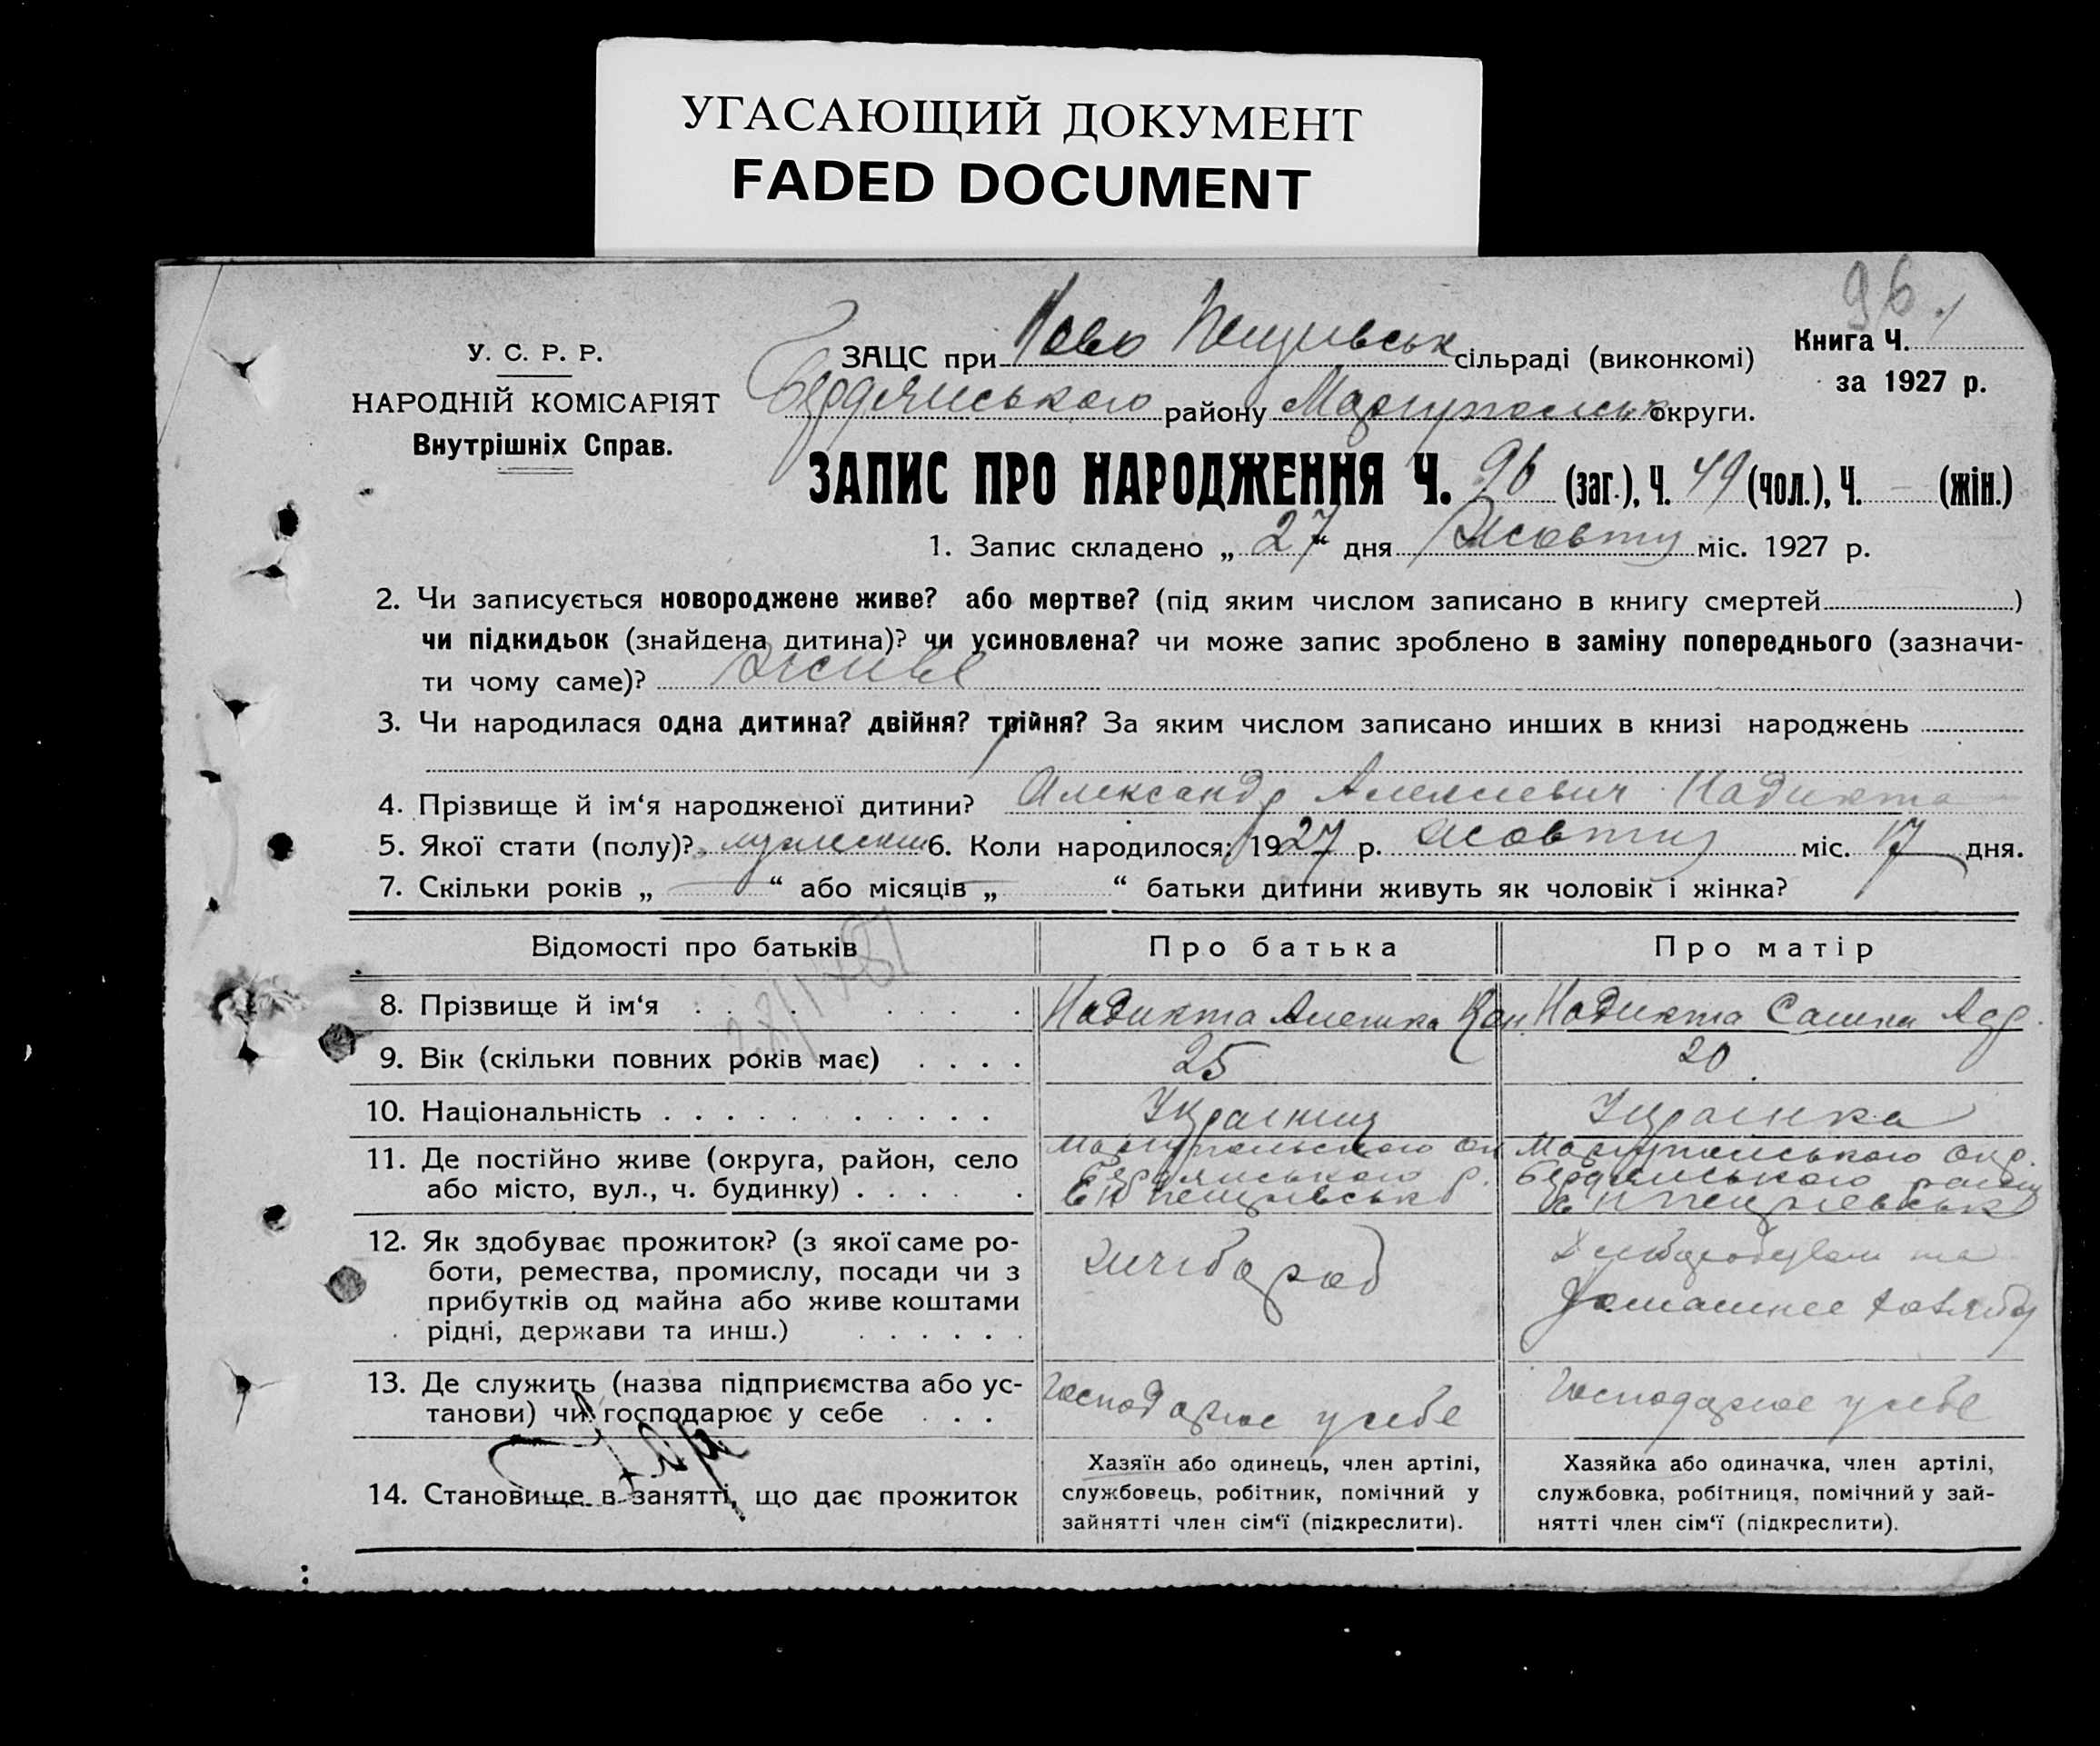 УГАСАЮЩИЙ ДОКУМЕНТ
FADED DOCUMENT
96
У. С. Р. Р.
НАРОДНІЙ КОМІСАРІЯТ
Внутрішніх Справ.
ЗАЦС при Ново сільраді (виконкомі)
Книга Ч.
за 1927 р.
Бердянського району Маріупольськ округи.
ЗАПИС ПРО НАРОДЖЕННЯ Ч. 96 (заг.), Ч. 49 (чол.), Ч. — (жін.)
1. Запис складено „ 27 “ дня Жовтня міс. 1927 р.
2. Чи записується новороджене живе? або мертве? (під яким числом записано в книгу смертей )
чи підкидьок (знайдена дитина)? чи усиновлена? чи може запис зроблено в заміну попереднього (зазначи-
ти чому саме)? живе
3. Чи народилася одна дитина? двійня? трійня? За яким числом записано инших в книзі народжень
4. Прізвище й ім‘я народженої дитини? Александр Алексиевич Надикта
5. Якої стати (полу)? 6. Коли народилося: 1927 р. жовтня міс. 17 дня.
7. Скільки років „ — “ або місяців „ “ батьки дитини живуть як чоловік і жінка?
Відомості про батьків
Про батька
Про матір
8. Прізвище й ім‘я
Надикта
Надикта
9. Вік (скільки повних років має)
25
20
10. Національність
Українец
Українка
11. Де постійно живе (округа, район, село
або місто, вул., ч. будинку)
Маріупольського ок
Бердянського р.
Маріупольського окр.
Бердянського
12. Як здобуває прожиток? (з якої саме ро-
боти, ремества, промислу, посади чи з
прибутків од майна або живе коштами
рідні, держави та инш.)
та
13. Де служить (назва підприємства або ус-
танови) чи господарює у себе
Господарює у себе
Господарює у себе
14. Становище в занятті, що дає прожиток
Хазяїн або одинець, член артілі,
службовець, робітник, помічний у
зайнятті член сім‘ї (підкреслити).
Хазяйка або одиначка, член артілі,
службовка, робітниця, помічний у зай-
нятті член сім‘ї (підкреслити).